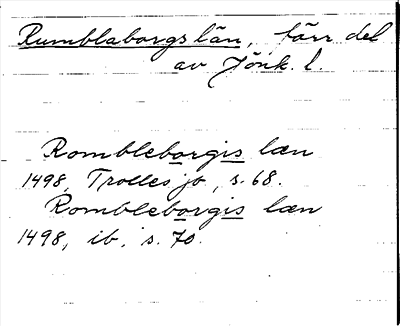 Rumblaborgs län, förr del
av Jönk. l.
Rombleborgis læn
1498, Trolles jb, s. 68.
Rombleborgis læn
1498, ib. s. 70.